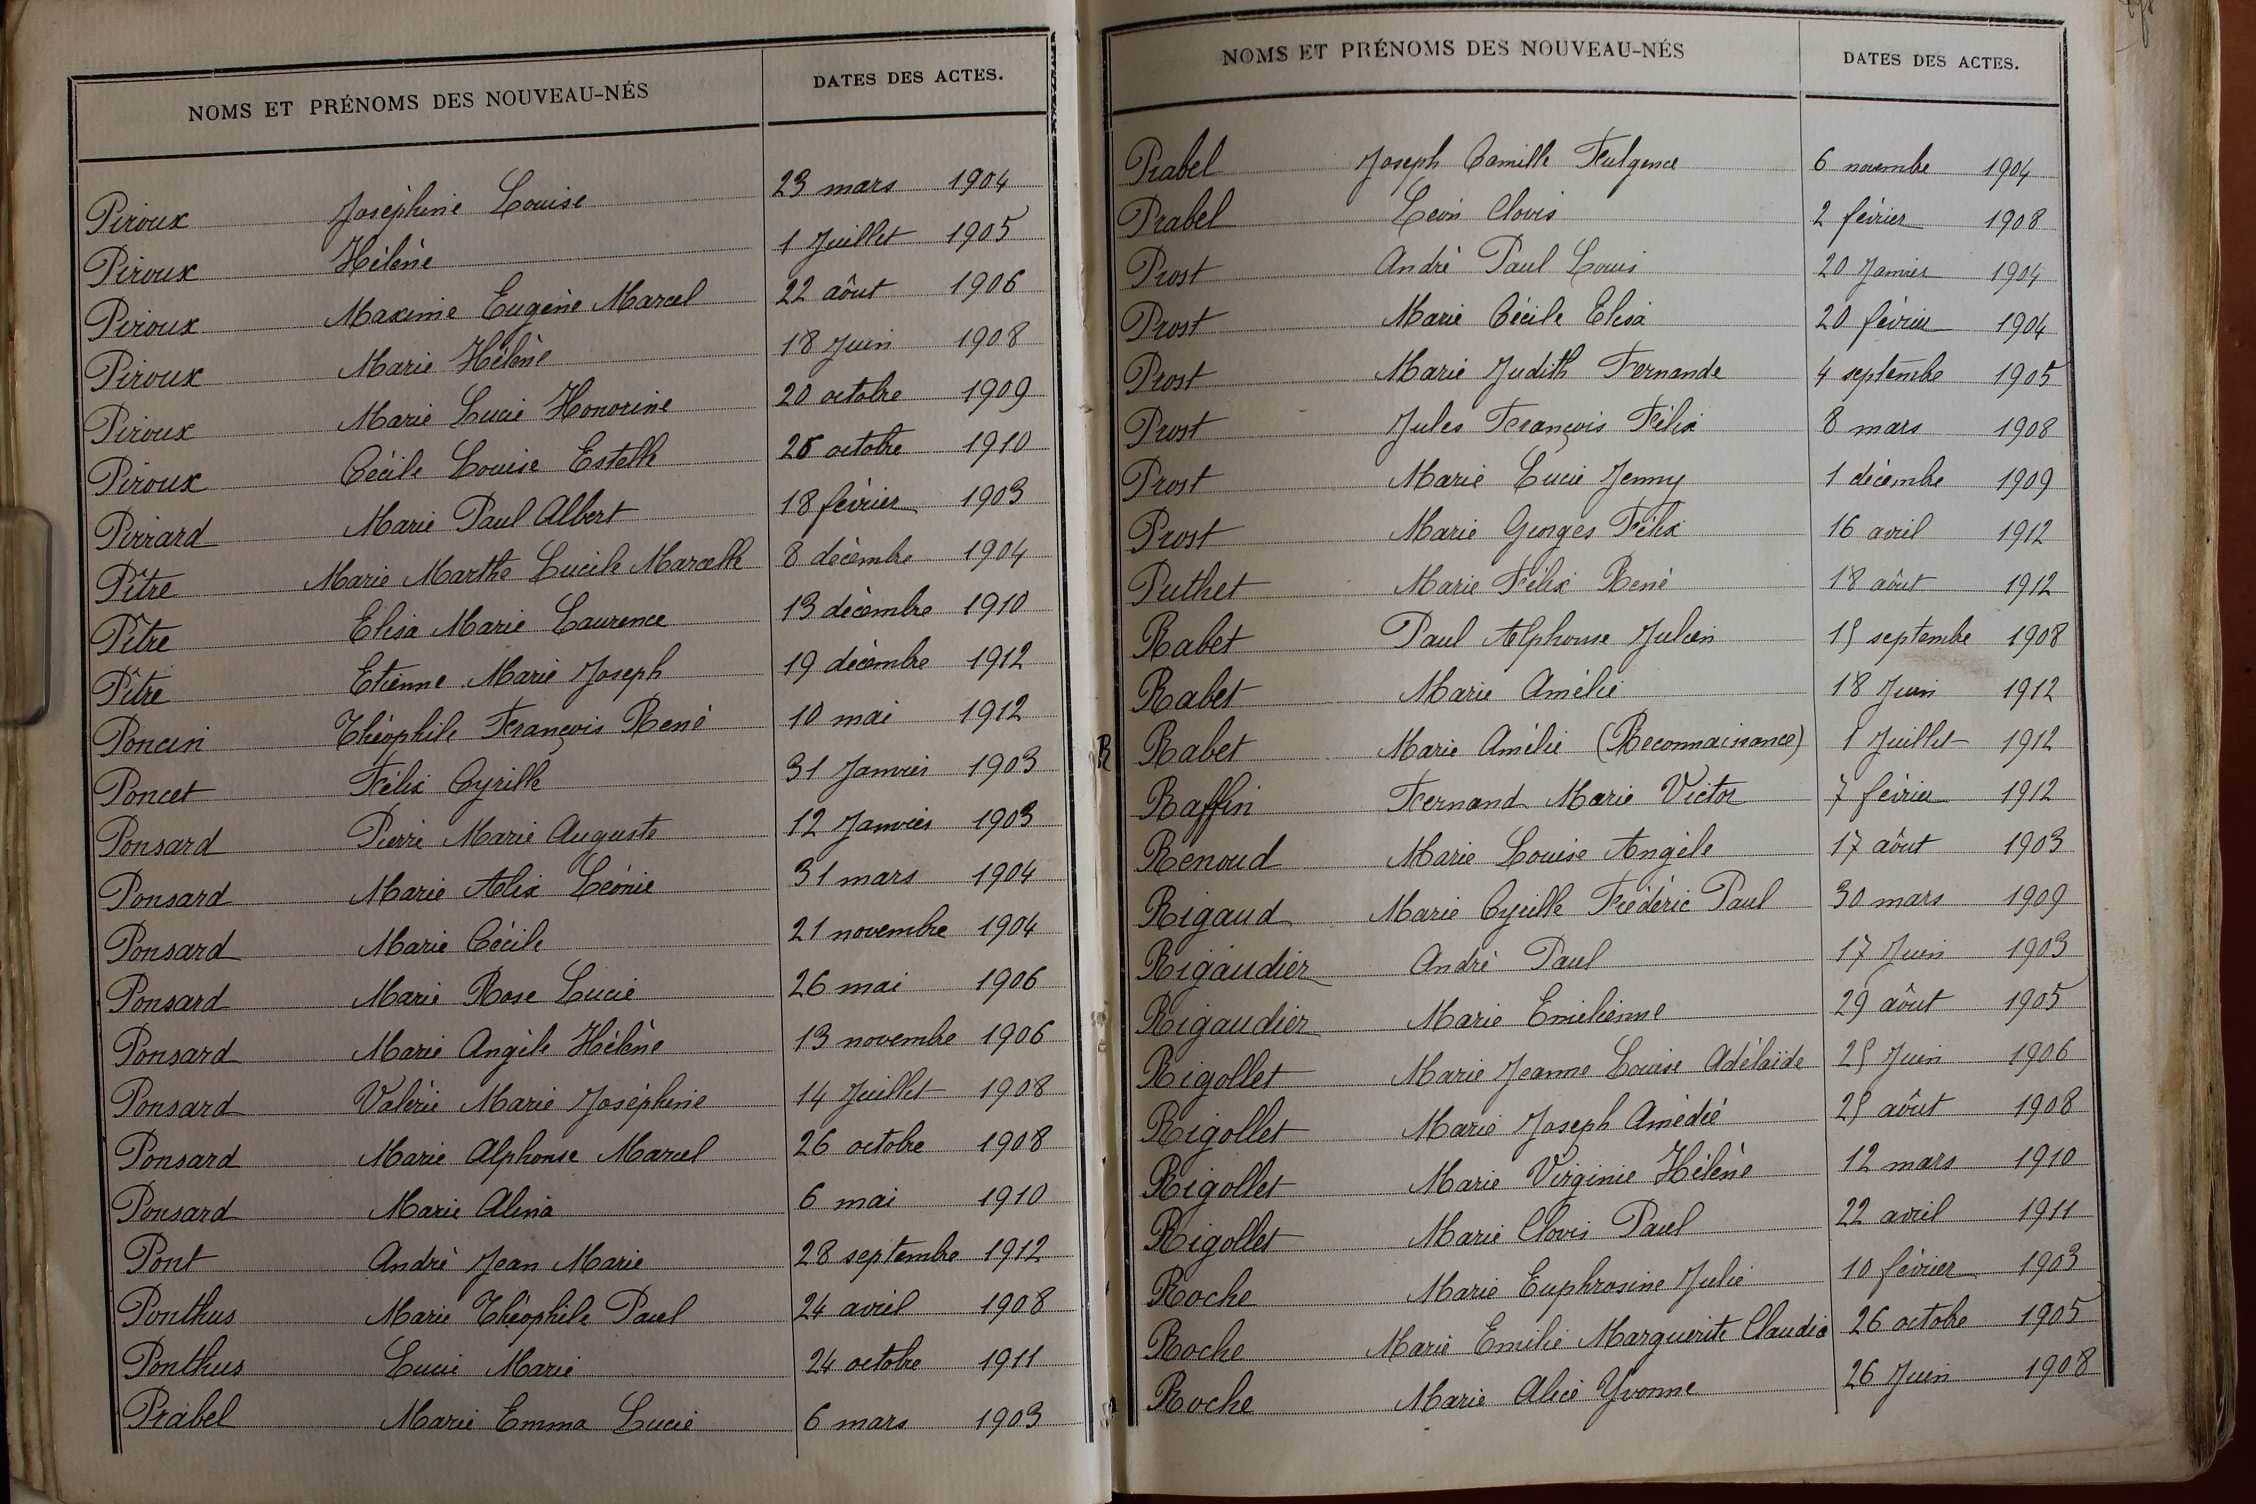 NOMS ET PRÉNOMS DES NOUVEAU-NÉS DATES DES ACTES.
Piroux Joséphine Louise 23 mars 1904
Piroux Hélène 1 Juillet 1905
Piroux Maxime Eugène Marcel 22 aôut 1906
Piroux Marie Hélène 18 Juin 1908
Piroux Marie Lucie Honorine 20 octobre 1909
Piroux Cécile Louise Estelle octobre 1910
Pirrard Marie Paul Albert 18 février 1903
Pitre Marie Marthe Lucile Marcelle 8 décembre 1904
Pitre Elisa Marie Laurence 13 décembre 1910
Pitre Etienne Marie Joseph 19 décembre 1912
Poncin Théophile François René 10 mai 1912
Poncet Félix Cyrille 31 Janvier 1903
Ponsard Pierre Marie Auguste 12 Janvier 1903
Ponsard Marie Alix Léonie 31 mars 1904
Ponsard Marie Cécile 21 novembre 1904
Ponsard Marie Rose Lucie 26 mai 1906
Ponsard Marie Angèle Hélène 13 novembre 1906
Ponsard Valérie Marie Joséphine 14 Juillet 1908
Ponsard Marie Alphonse Marcel 26 octobre 1908
Ponsard Marie Alina 6 mai 1910
Pont André Jean Marie 28 septembre 1912
Ponthus Marie Théophile Paul 24 avril 1908
Ponthus Lucie Marie 24 octobre 1911
Prabel Marie Emma Lucie 6 mars 1903
NOMS ET PRÉNOMS DES NOUVEAU-NÉS DATES DES ACTES.
Prabel Joseph Camille Fulgence 6 novembre 1904
Prabel Léon Clovis 2 février 1908
Prost André Paul Louis 20 Janvier 1904
Prost Marie Cécile Elisa 20 février 1904
Prost Marie Judith Fernande 4 septembre 1905
Prost Jules François Félix 8 mars 1908
Prost Marie Lucie Jenny 1 décembre 1909
Prost Marie Georges Félix 16 avril 1912
Puthet Marie Félix René 18 aôut 1912
Rabet Paul Alphonse Julien 15 septembre 1908
Rabet Marie Amélie 18 Juin 1912
R Rabet Marie Amélie (Reconnaissance) 1 Juillet 1912
Raffin Fernand Marie Victor 7 février 1912
Renoud Marie Louise Angèle 17 aôut 1903
Rigaud Marie Cyrille Frédéric Paul 30 mars 1909
Rigaudier André Paul 17 Juin 1903
Rigaudier Marie Emilienne 29 aôut 1905
Rigollet Marie Jeanne Louise Adélaïde 25 Juin 1906
Rigollet Marie Joseph Amédée 25 aôut 1908
Rigollet Marie Virginie Hélène 12 mars 1910
Rigollet Marie Clovis Paul 22 avril 1911
Roche Marie Euphrosine Julie 10 février 1903
Roche Marie Emilie Marguerite Claudia 26 octobre 1905
Roche Marie Alice Yvonne 26 Juin 1908